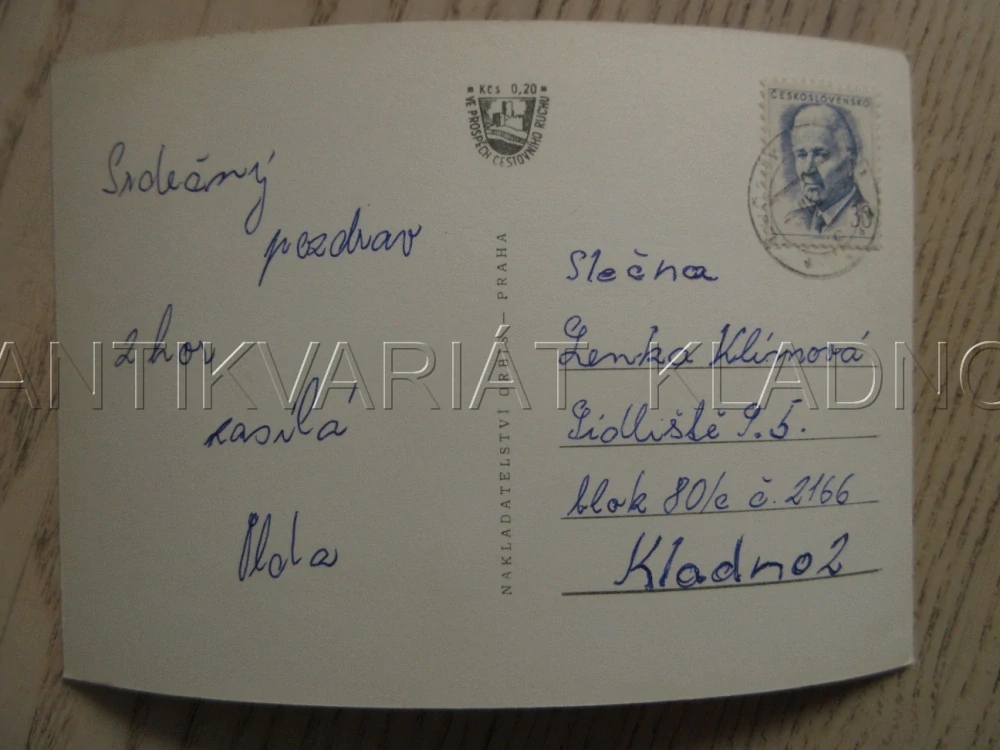 Kčs 0,20
VE PROSPĚCH CESTOVNÍHO RUCHU
ČESKOSLOVENSKO
30
Srdečný
pozdrav
z hor
zasílá
NAKLADATELSTVÍ ORBIS – PRAHA
Slečna
Lenka Klímová
Sídliště S. 5.
blok 80/c č. 2166
Kladno 2
ANTIKVARIÁT KLADNO